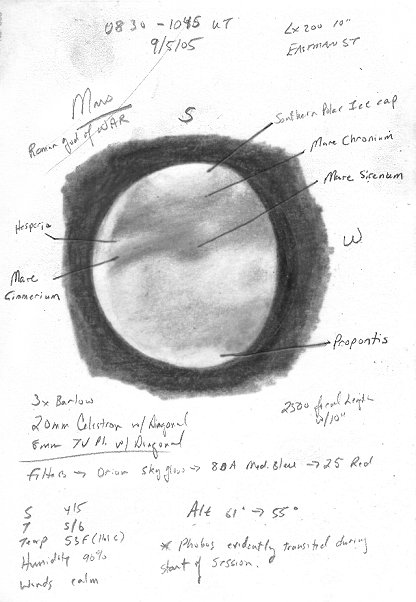 0830 - 1045 UT
9/5/05
LX200 10"
EASTMAN ST
Mars
Roman god of WAR
S
Southern Polar Ice cap
Mare Chronium
Mare Sirenum
Hesperia
W
Mare
Cimmerium
Propontis
3x Barlow
20mm Celestron w/ Diagonal
8mm TV Pl. w/ Diagonal
2500 focal Length
w/10"
Filters → Orion Skyglow → 80A Med. Blue → 25 Red
S 4/5
T 5/6
Temp 53F (11.6 C)
Humidity 90%
Winds calm
Alt 61° → 55°
* Phobos evidently transited during
start of Session.